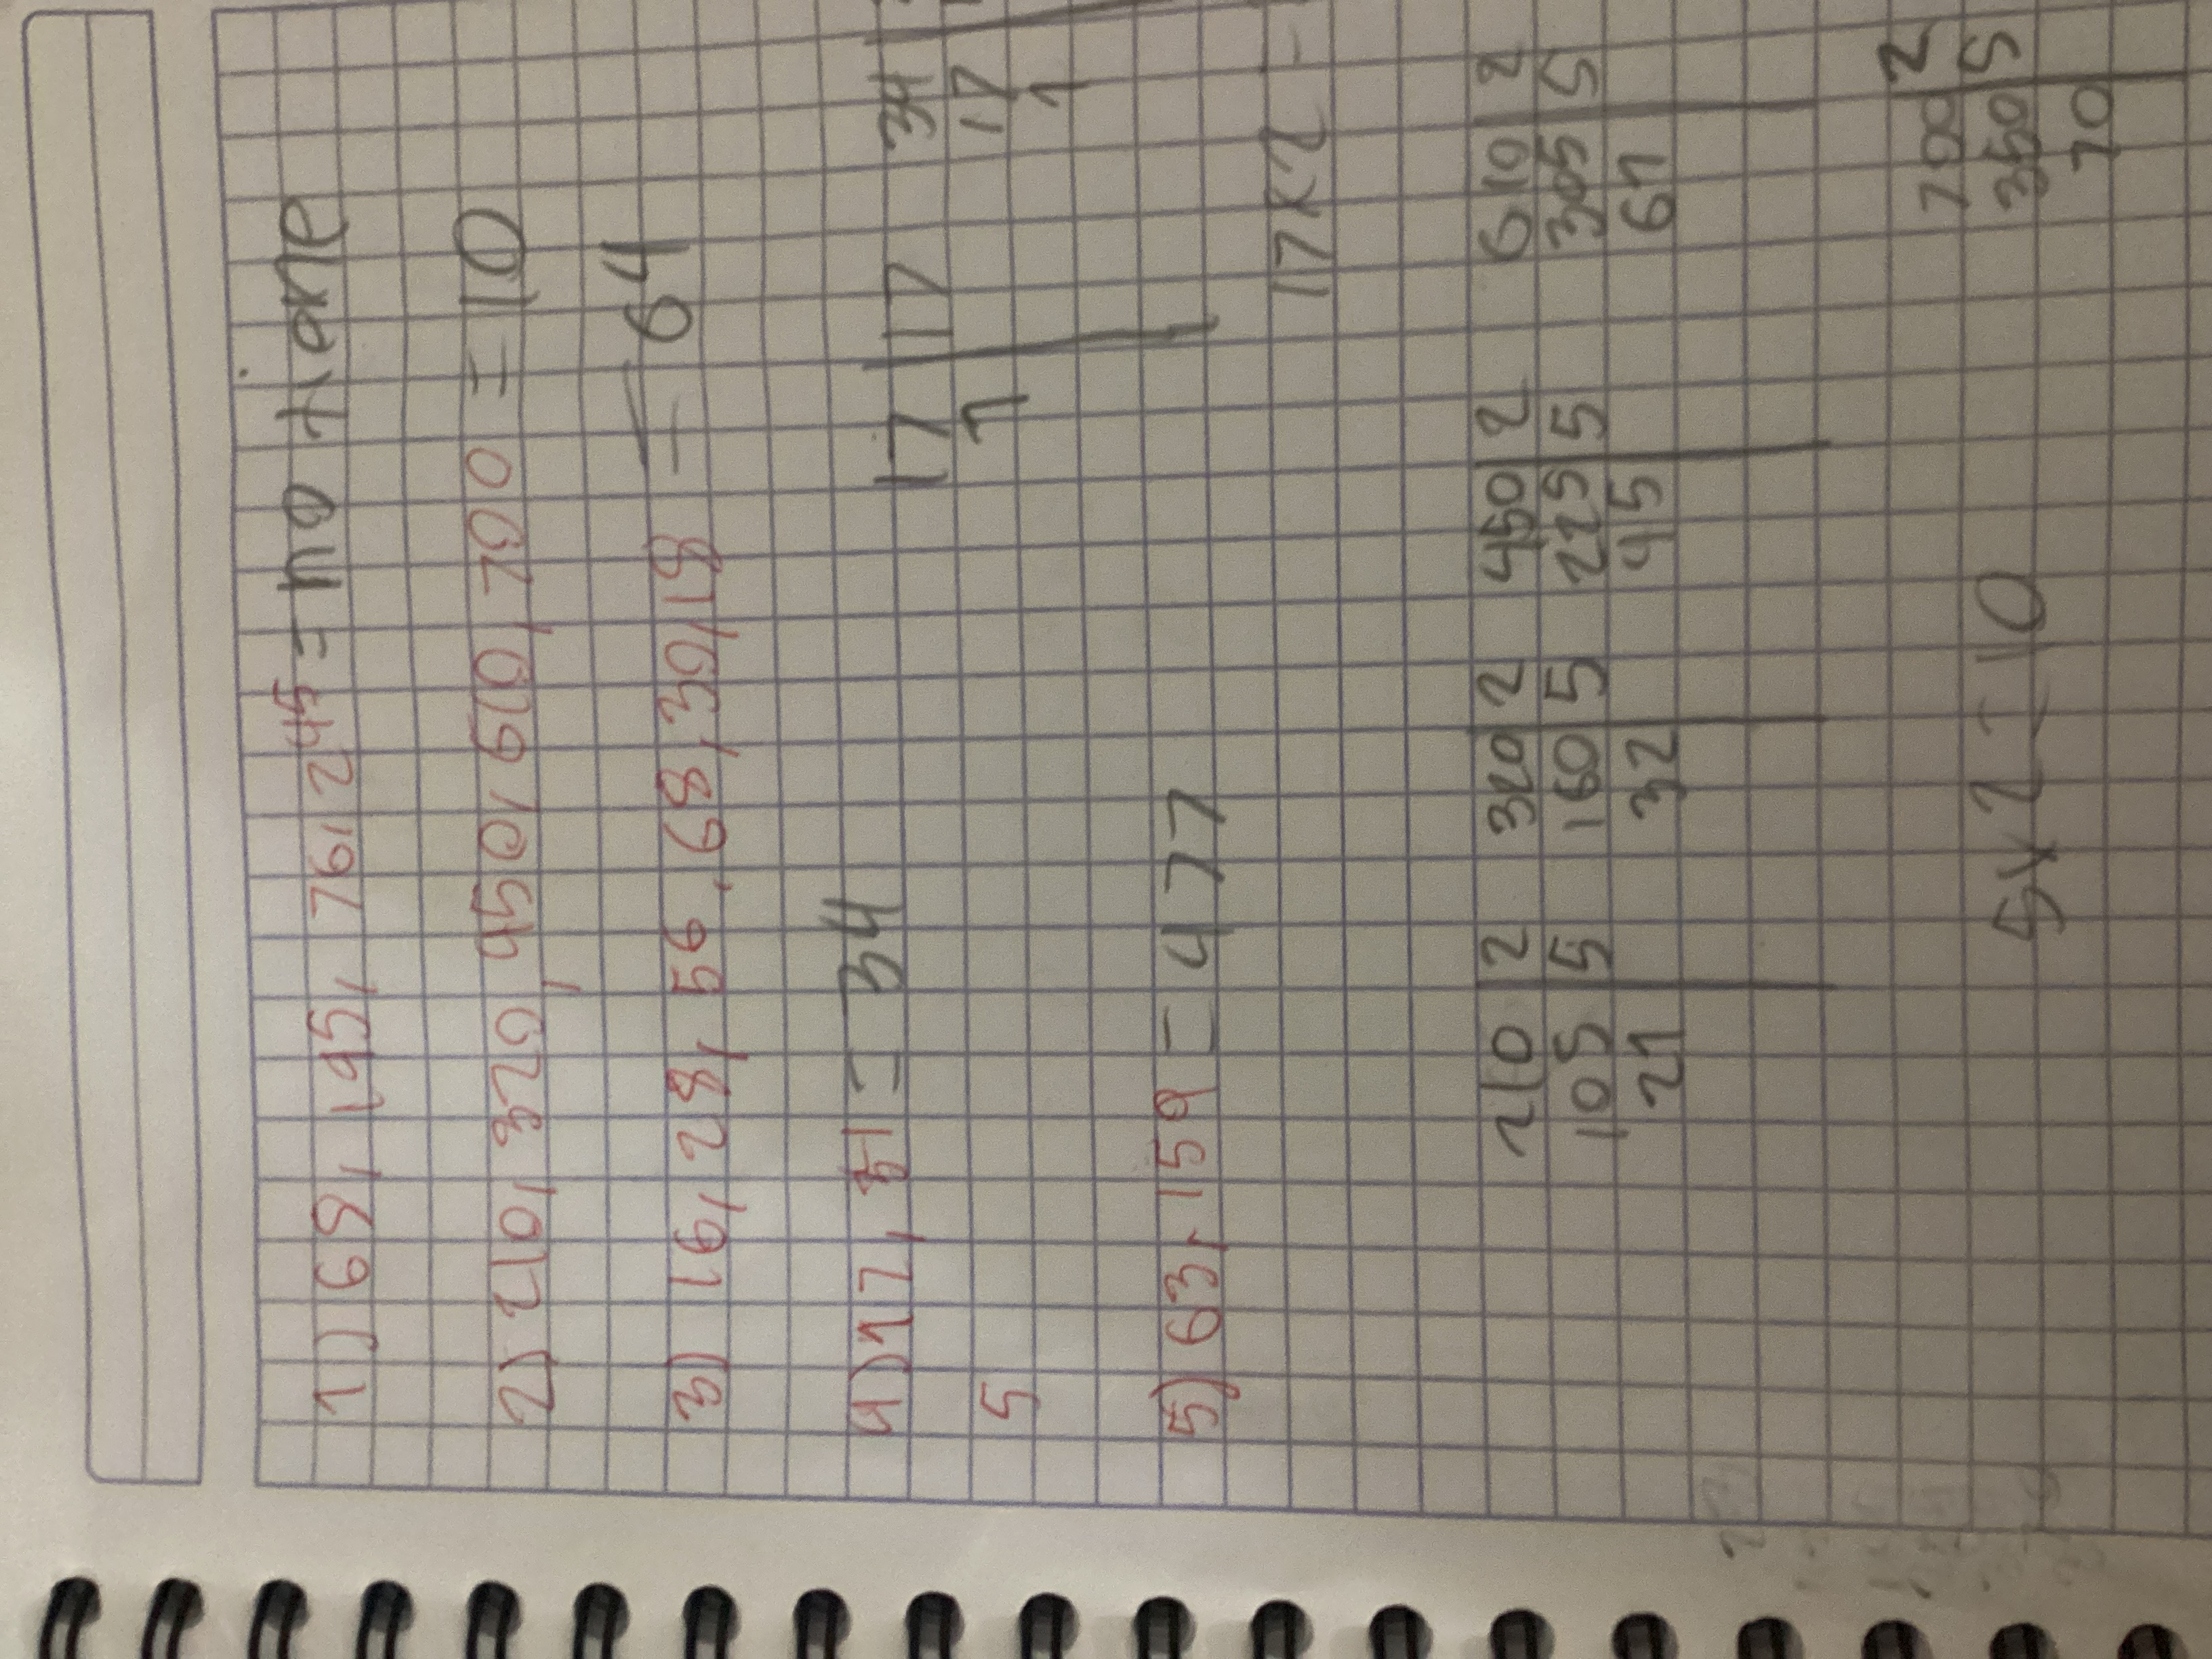 1) 69, 195, 76, 245 = no tiene
2) 210, 320, 450, 610, 700 = 10
3) 16, 28, 56, 68, 30, 18 = 64
4) 17, 51 = 34
17 17 34
1 17
5 1
5) 63, 159 = 477
17 x 2 =
210 2 320 2 450 2 610 2
105 5 160 5 225 5 305 5
21 32 45 61
700 2
5 x 2 = 10 350 5
70